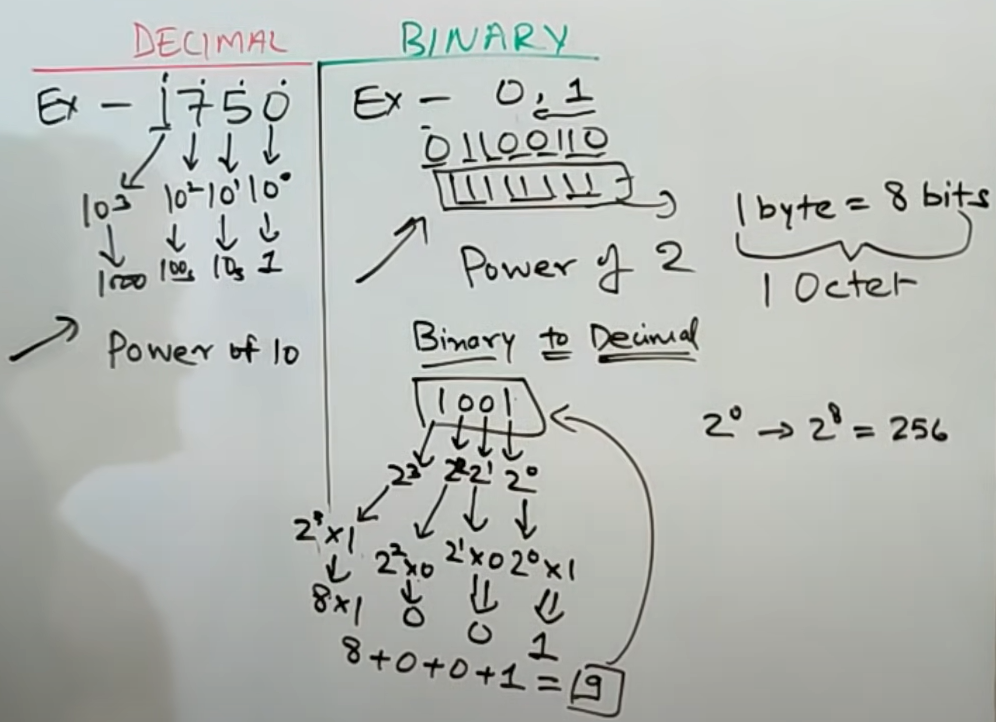 DECIMAL
Ex - 1750
10³ 10² 10¹ 10⁰
1000 100s 10s 1
Power of 10
BINARY
Ex - 0, 1
01100110
11111111
Power of 2
1 byte = 8 bits
1 Octet
Binary to Decimal
1001
2³ 2² 2¹ 2⁰
2³×1 2²×0 2¹×0 2⁰×1
8×1 0 0 1
8+0+0+1 = 9
2⁰ → 2⁸ = 256